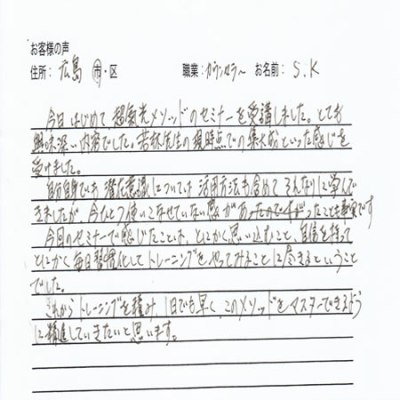 お客様の声
住所: 広島 市・区 職業: カウンセラー お名前: S.K
今日はじめて超気光メソッドのセミナーを受講しました。とても
興味深い内容でした。若林先生の現時点での集大成といった感じを
受けました。
自分自身でも潜在意識については活用方法も含めてそれなりに学んで
きましたが、今ひとつ使いこなせていない感があったことも事実です
今回のセミナーで感じたことは、とにかく思い込むこと、自信を持って
とにかく毎日習慣化してトレーニングをやってみることに尽きるということ
でした。
これからトレーニングを積み、1日でも早くこのメソッドをマスターできるよう
に精進していきたいと思います。